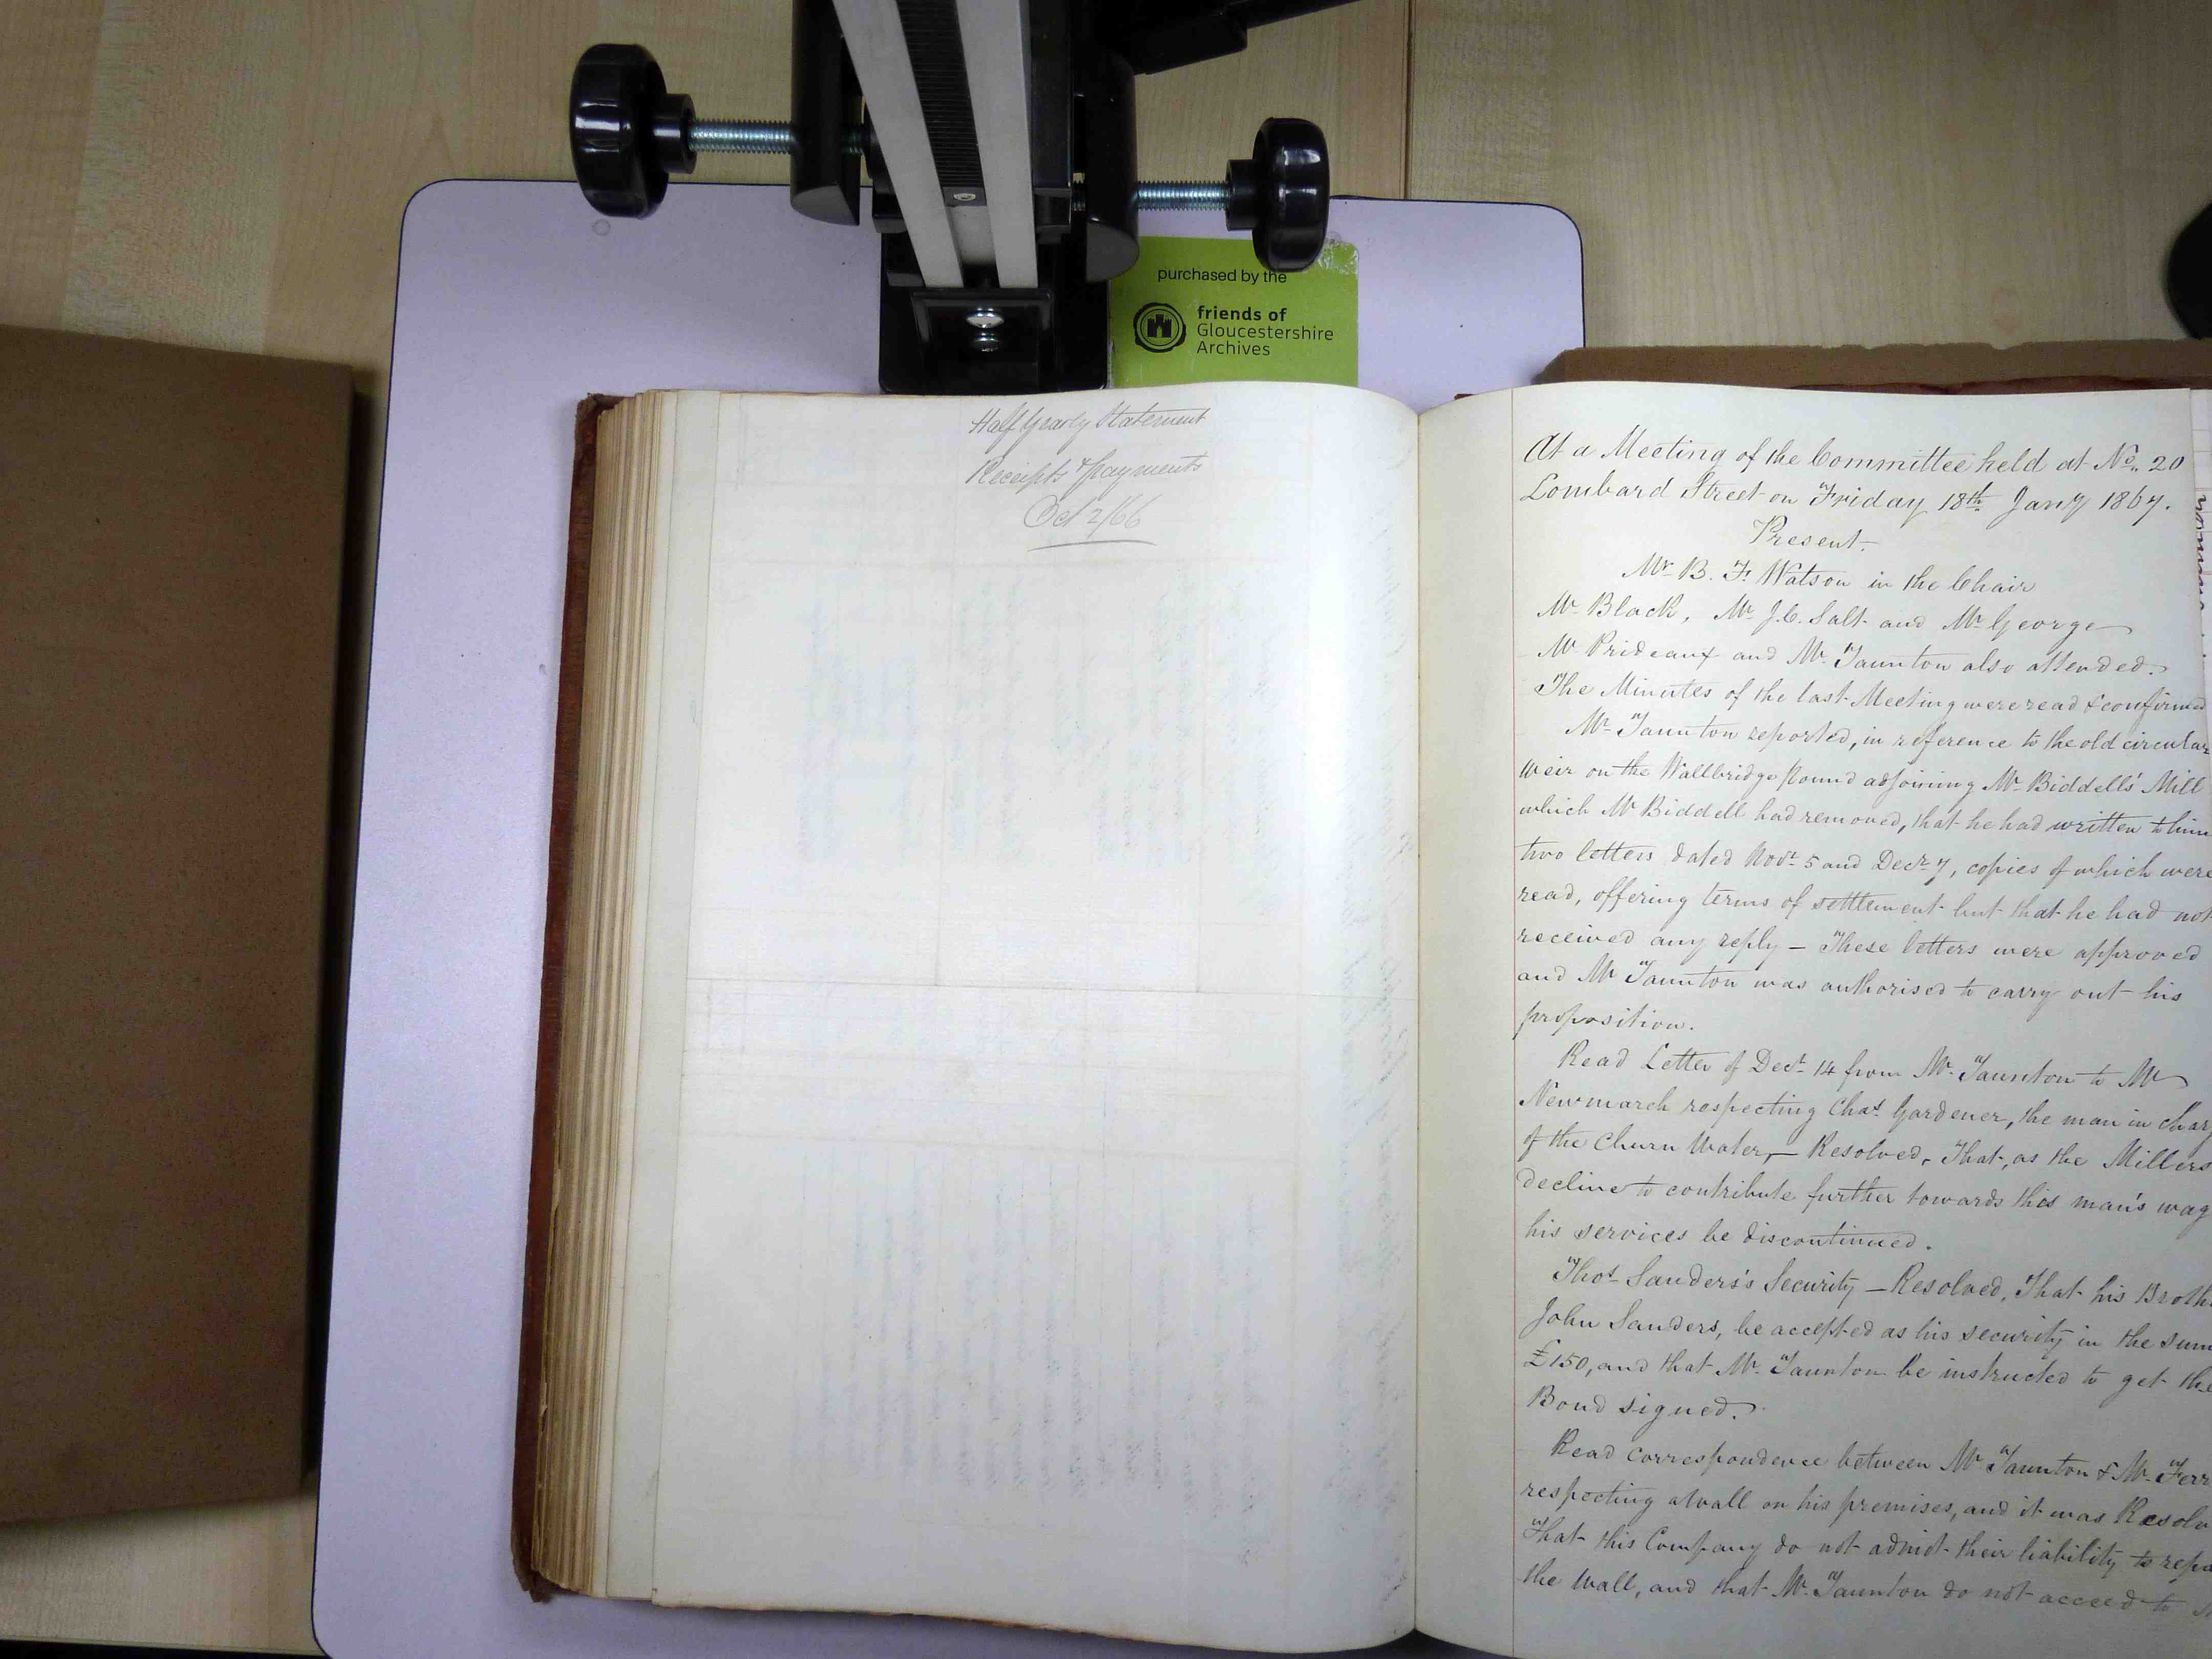 purchased by the
friends of
Gloucestershire
Archives
Half Yearly Statement
Receipts & payments
Oct 2/66
At a Meeting of the Committee held at No. 20
Lombard Street on Friday 18th Jany 1867.
Present
Mr B. F. Watson in the Chair
Mr Black, Mr J.C. Salt and Mr George
Mr Prideaux and Mr Taunton also attended.
The Minutes of the last Meeting were read & confirmed
Mr Taunton reported, in reference to the old circular
weir on the Wallbridge pound adjoining Mr Biddell's Mill
which Mr Biddell had removed, that he had written to him
two letters dated Novr 5 and Decr 7, copies of which were
read, offering terms of settlement but that he had not
received any reply — These letters were approved
and Mr Taunton was authorised to carry out his
proposition.
Read Letter of Decr 14 from Mr Taunton to Mr
Newmarch respecting Chas Gardener, the man in char
of the Churn Water, — Resolved, That, as the Millers
decline to contribute further towards this man's wag
his services be discontinued.
Thos Sanders's Security — Resolved, That his Broth
John Sanders, be accepted as his security in the sum
£150, and that Mr Taunton be instructed to get the
Bond signed.
Read correspondence between Mr Taunton & Mr Ferr
respecting a wall on his premises, and it was Resolv
That this Company do not admit their liability to repa
the Wall, and that Mr Taunton do not acceed to